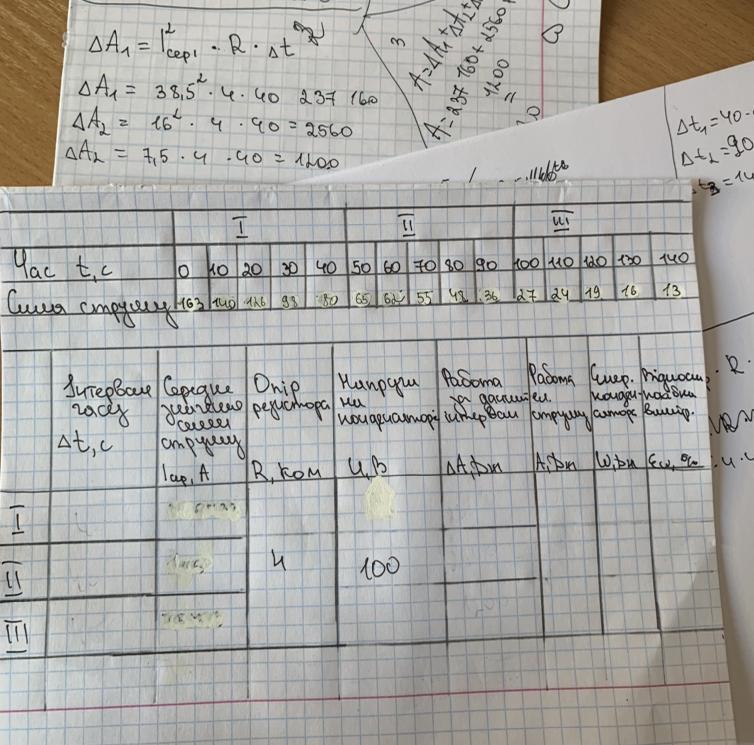 ΔA₁ = I²сер₁ · R · Δt
ΔA₁ = 38,5² · 4 · 40 237 160
ΔA₂ = 16² · 4 · 40 = 2560
ΔA₂ = 7,5 · 4 · 40 = 1200
3
A = ΔA₁ + ΔA₂ +
A = 237 160 + 2560
1200
=
Δt₁ = 40
Δt₂ = 90
t₃ = 14
I II III
Час t, с 0 10 20 30 40 50 60 70 80 90 100 110 120 130 140
Сила струму 163 140 126 93 80 65 62 55 48 36 27 24 19 16 13
Інтервал часу Δt, с
Середнє значення сили струму Iср, А
Опір резистора R, кОм
Напруга на конденсаторі U, В
Работа за даний інтервал ΔA, Дж
Работа ел. струму A, Дж
Енер. конденсатора W, Дж
Відносна похибка вимір. Ew, %
I
II 4 100
III
· R ·
· 4 ·